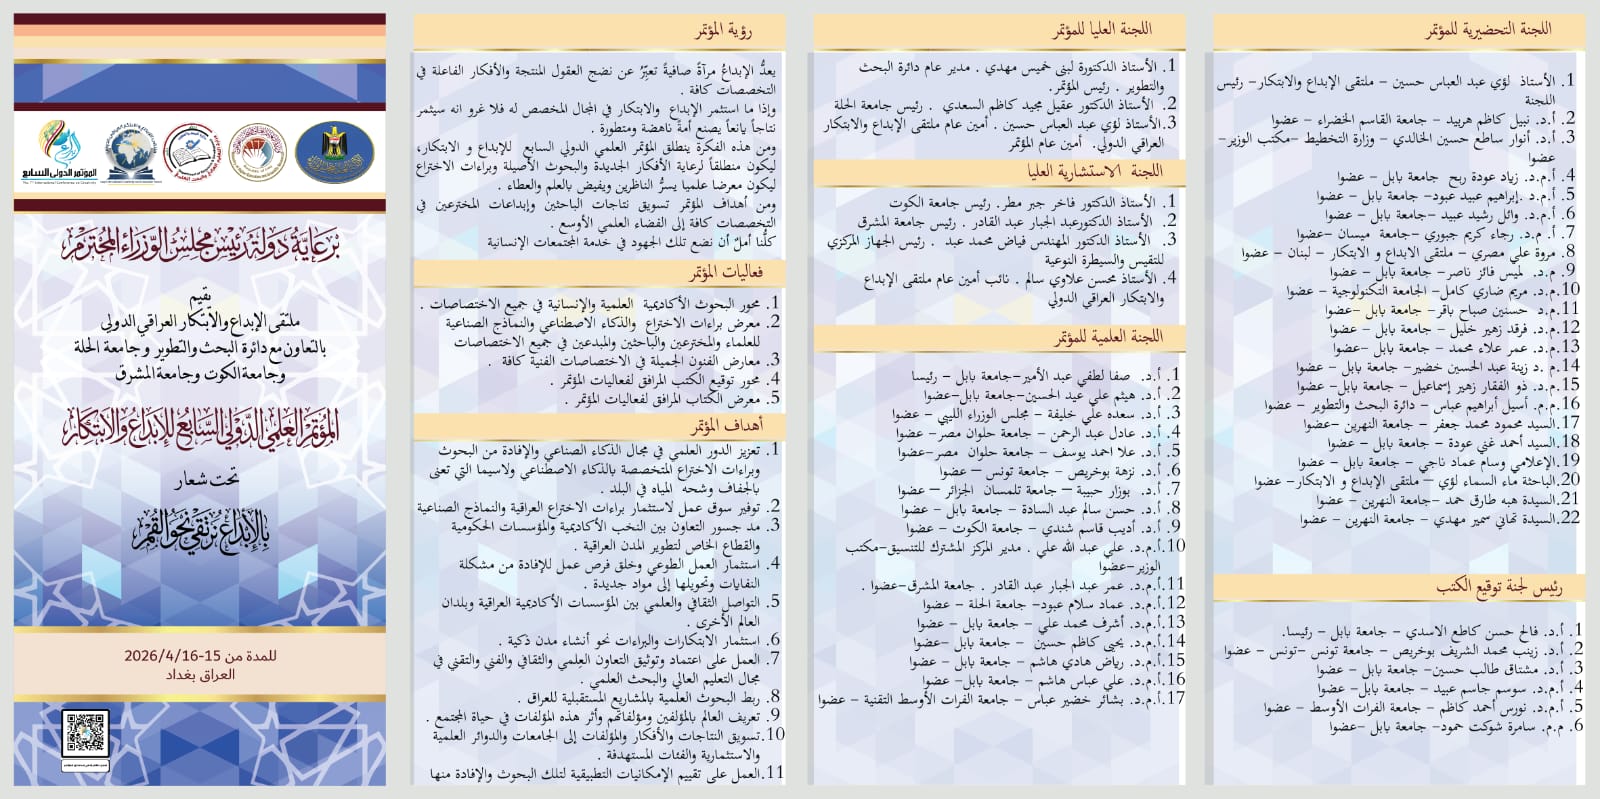 المؤتمر الدولى السابع
The 7th International Conference on Creativity
برعاية دولة رئيس مجلس الوزراء المحترم
يقيم
ملتقى الإبداع والابتكار العراقي الدولى
بالتعاون مع دائرة البحث والتطوير وجامعة الحلة
وجامعة الكوت وجامعة المشرق
المؤتمر العلمي الدولي السابع للإبداع والابتكار
تحت شعار
بالإبداع نرتقي نحو القمم
للمدة من 15-2026/4/16
العراق بغداد
رؤية المؤتمر
يعدُّ الإبداعُ مرآةً صافيةً تعبِّرُ عن نضج العقول المنتجة والأفكار الفاعلة في
التخصصات كافة .
وإذا ما استثمر الإبداع والابتكار في المجال المخصص له فلا غرو انه سيثمر
نتاجاً يانعاً يصنع أمةً ناهضة ومتطورة .
ومن هذه الفكرة ينطلق المؤتمر العلمي الدولي السابع للإبداع و الابتكار،
ليكون منطلقاً لرعاية الأفكار الجديدة والبحوث الأصيلة وبراءات الاختراع
ليكون معرضا علميا يسرُّ الناظرين ويفيض بالعلم والعطاء .
ومن أهداف المؤتمر تسويق نتاجات الباحثين وإبداعات المخترعين في
التخصصات كافة إلى الفضاء العلمي الأوسع .
كلُّنا أملٌ أن نضع تلك الجهود في خدمة المجتمعات الإنسانية
فعاليات المؤتمر
1. محور البحوث الأكاديمية العلمية والإنسانية في جميع الاختصاصات .
2. معرض براءات الاختراع والذكاء الاصطناعي والنماذج الصناعية
للعلماء والمخترعين والباحثين والمبدعين في جميع الاختصاصات
3. معارض الفنون الجميلة في الاختصاصات الفنية كافة .
4. محور توقيع الكتب المرافق لفعاليات المؤتمر .
5. معرض الكتاب المرافق لفعاليات المؤتمر .
أهداف المؤتمر
1. تعزيز الدور العلمي في مجال الذكاء الصناعي والإفادة من البحوث
وبراءات الاختراع المتخصصة بالذكاء الاصطناعي ولاسيما التي تعنى
بالجفاف وشحه المياه في البلد .
2. توفير سوق عمل لاستثمار براءات الاختراع العراقية والنماذج الصناعية
3. مد جسور التعاون بين النخب الأكاديمية والمؤسسات الحكومية
والقطاع الخاص لتطوير المدن العراقية .
4. استثمار العمل الطوعي وخلق فرص عمل للإفادة من مشكلة
النفايات وتحويلها إلى مواد جديدة .
5. التواصل الثقافي والعلمي بين المؤسسات الأكاديمية العراقية وبلدان
العالم الأخرى .
6. استثمار الابتكارات والبراءات نحو أنشاء مدن ذكية .
7. العمل على اعتماد وتوثيق التعاون العلمي والثقافي والفني والتقني في
مجال التعليم العالي والبحث العلمي .
8. ربط البحوث العلمية بالمشاريع المستقبلية للعراق .
9. تعريف العالم بالمؤلفين ومؤلفاتهم وأثر هذه المؤلفات في حياة المجتمع .
10. تسويق النتاجات والأفكار والمؤلفات إلى الجامعات والدوائر العلمية
والاستثمارية والفئات المستهدفة .
11. العمل على تقييم الإمكانيات التطبيقية لتلك البحوث والإفادة منها
اللجنة العليا للمؤتمر
1. الأستاذ الدكتورة لبنى خميس مهدي . مدير عام دائرة البحث
والتطوير . رئيس المؤتمر.
2. الأستاذ الدكتور عقيل مجيد كاظم السعدي . رئيس جامعة الحلة
3.الأستاذ لؤي عبد العباس حسين . أمين عام ملتقى الإبداع والابتكار
العراقي الدولي. أمين عام المؤتمر
اللجنة الاستشارية العليا
1. الأستاذ الدكتور فاخر جبر مطر. رئيس جامعة الكوت
2. الأستاذ الدكتورعبد الجبار عبد القادر . رئيس جامعة المشرق
3. الأستاذ الدكتور المهندس فياض محمد عبد . رئيس الجهاز المركزي
للتقيس والسيطرة النوعية
4. الأستاذ محسن علاوي سالم . نائب أمين عام ملتقى الإبداع
والابتكار العراقي الدولي
اللجنة العلمية للمؤتمر
1. أ.د. صفا لطفي عبد الأمير–جامعة بابل – رئيسا
2. أ.د. هيثم علي عيد الحسين–جامعة بابل–عضوا
3. أ.د. سعده علي خليفة – مجلس الوزراء الليبي – عضوا
4. أ.د. عادل عبد الرحمن – جامعة حلوان مصر– عضوا
5. أ.د. علا احمد يوسف – جامعة حلوان مصر–عضوا
6. أ.د. نزهة بوخريص – جامعة تونس – عضوا
7. أ.د. بوزار حبيبة – جامعة تلمسان الجزائر – عضوا
8. أ.د. حسن سالم عبد السادة – جامعة بابل – عضوا
9. أ.د. أديب قاسم شندي – جامعة الكوت – عضوا
10.أ.م.د. علي عبد الله علي . مدير المركز المشترك للتنسيق–مكتب
الوزير–عضوا
11.أ.م.د. عمر عبد الجبار عبد القادر . جامعة المشرق–عضوا .
12.أ.م.د. عماد سلام عبود– جامعة الحلة – عضوا
13.أ.م.د. أشرف محمد علي – جامعة بابل – عضوا
14.أ.م.د. يحيى كاظم حسين – جامعة بابل –عضوا
15.أ.م.د. رياض هادي هاشم – جامعة بابل– عضوا
16.أ.م.د. علي عباس هاشم – جامعة بابل– عضوا
17.أ.م.د. بشائر خضير عباس – جامعة الفرات الأوسط التقنية – عضوا
اللجنة التحضيرية للمؤتمر
1. الأستاذ لؤي عبد العباس حسين – ملتقى الإبداع والابتكار– رئيس
اللجنة
2. أ.د. نبيل كاظم هربيد – جامعة القاسم الخضراء – عضوا
3. أ.د. أنوار ساطع حسين الخالدي – وزارة التخطيط –مكتب الوزير–
عضوا
4. أ.م.د. زياد عودة ربح جامعة بابل – عضوا
5. أ.م.د. إبراهيم عبيد عبود– جامعة بابل – عضوا
6. أ.م.د. وائل رشيد عبيد –جامعة بابل – عضوا
7. أ.م.د. رجاء كريم جبوري –جامعة ميسان –عضوا
8. مروة علي مصري – ملتقى الابداع و الابتكار – لبنان – عضوا
9. م.د. لميس فائز ناصر– جامعة بابل – عضوا
10.م.د. مريم ضاري كامل– الجامعة التكنولوجية – عضوا
11.م.د حسنين صباح باقر– جامعة بابل –عضوا
12.م.د. فرقد زهير خليل – جامعة بابل – عضوا
13.م.د. عمر علاء محمد – جامعة بابل –عضوا
14.م.د. زينة عبد الحسين خضير– جامعة بابل – عضوا
15.م.د. ذو الفقار زهير إسماعيل – جامعة بابل–عضوا
16.م.م. أسيل أبراهيم عباس – دائرة البحث والتطوير – عضوا
17.السيد محمود محمد جعفر – جامعة النهرين –عضوا
18.السيد أحمد غني عودة – جامعة بابل – عضوا
19.الإعلامي وسام عماد ناجي – جامعة بابل – عضوا
20.الباحثة ماء السماء لؤي – ملتقى الإبداع و الابتكار– عضوا
21.السيدة هبه طارق حمد –جامعة النهرين – عضوا
22.السيدة تماني سمير مهدي – جامعة النهرين – عضوا
رئيس لجنة توقيع الكتب
1. أ.د. فالح حسن كاطع الاسدي – جامعة بابل – رئيسا.
2. أ.د. زينب محمد الشريف بوخريص – جامعة تونس –تونس – عضوا
3. أ.د. مشتاق طالب حسين– جامعة بابل – عضوا
4. أ.م.د. سوسم جاسم عبيد – جامعة بابل– عضوا
5. أ.م.د. نورس أحمد كاظم – جامعة الفرات الأوسط – عضوا
6. م.م. سامرة شوكت حمود– جامعة بابل –عضوا